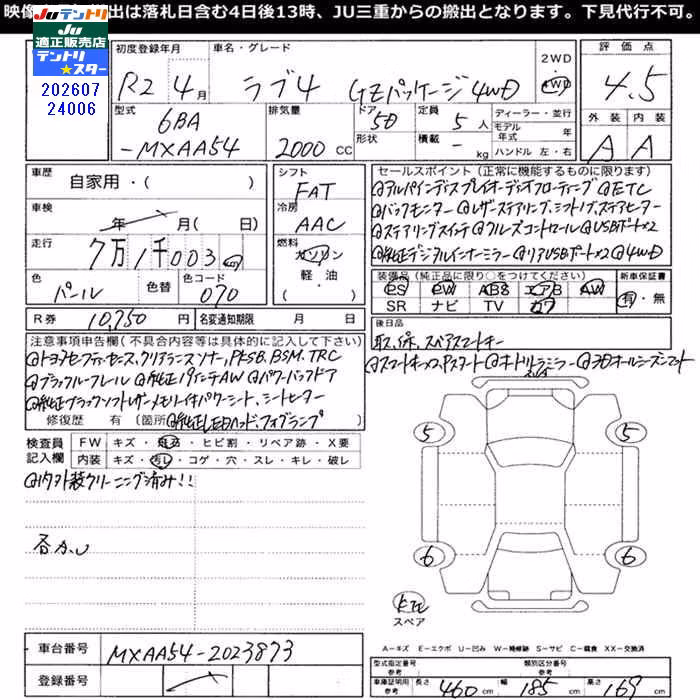 映像 出は落札日含む4日後13時、JU三重からの搬出となります。下見代行不可。
Juテントリ
JU適正販売店
テントリ★スター
202607
24006
初度登録年月 車名・グレード 2WD 評価点
R2 4月 ラブ4 Gzパッケージ4WD 4WD 4.5
型式 排気量 ドア 定員 ディーラー・並行 外装 内装
6BA 5D 5人 モデル年式 年
-MXAA54 2000cc 形状 積載 - kg ハンドル 左・右 A A
車歴 シフト セールスポイント(正常に機能するものに限ります)
自家用・( ) FAT @アルパインディスプレイオーディオフローティング @ETC
車検 冷房 @バックモニター @レザーステアリング、シフトノブ、ステアヒーター
年 月(日) AAC @ステアリングスイッチ @クルーズコントロール @USBポート×2
走行 燃料 @純正デジタルインナーミラー @リアUSBポート×2 @4WD
7万1千003km ガソリン
軽・油
( )
装備品(純正品に限り○をつけてください) 新車保証書
PS PW ABS エアB AW 有・無
SR ナビ TV カワ
色 色替 色コード
パール 070
R券 10,750円 名変通知期限 月 日
後日品
取、保、スペアスマートキー
@スマートキー×2、Pスタート @オートドアミラー @3Dオールシーズンマット
注意事項申告欄(不具合内容等は具体的に記入して下さい)
@トヨタセーフティーセンス、クリアランスソナー、PKSB、BSM、TRC
@ブラックルーフレール @純正19インチAW @パワーバックドア
@純正ブラックソフトレザーメモリー付キパワーシート、シートヒーター
修復歴 有(箇所 @純正LEDヘッド、フォグランプ )
検査員記入欄 FW キズ・飛石・ヒビ割・リペア跡・X要
内装 キズ・汚レ・コゲ・穴・スレ・キレ・破レ
@内外装クリーニング済み!!
5 5
6 6
スペア
A-キズ E-エクボ U-凹み W-補修跡 S-サビ C-腐食 XX-交換済
車台番号 MXAA54-2023873
登録番号
型式指定番号 参考 類別区分番号 参考
車庫証明用 参考 長さ 460cm 幅 185cm 高さ 169cm